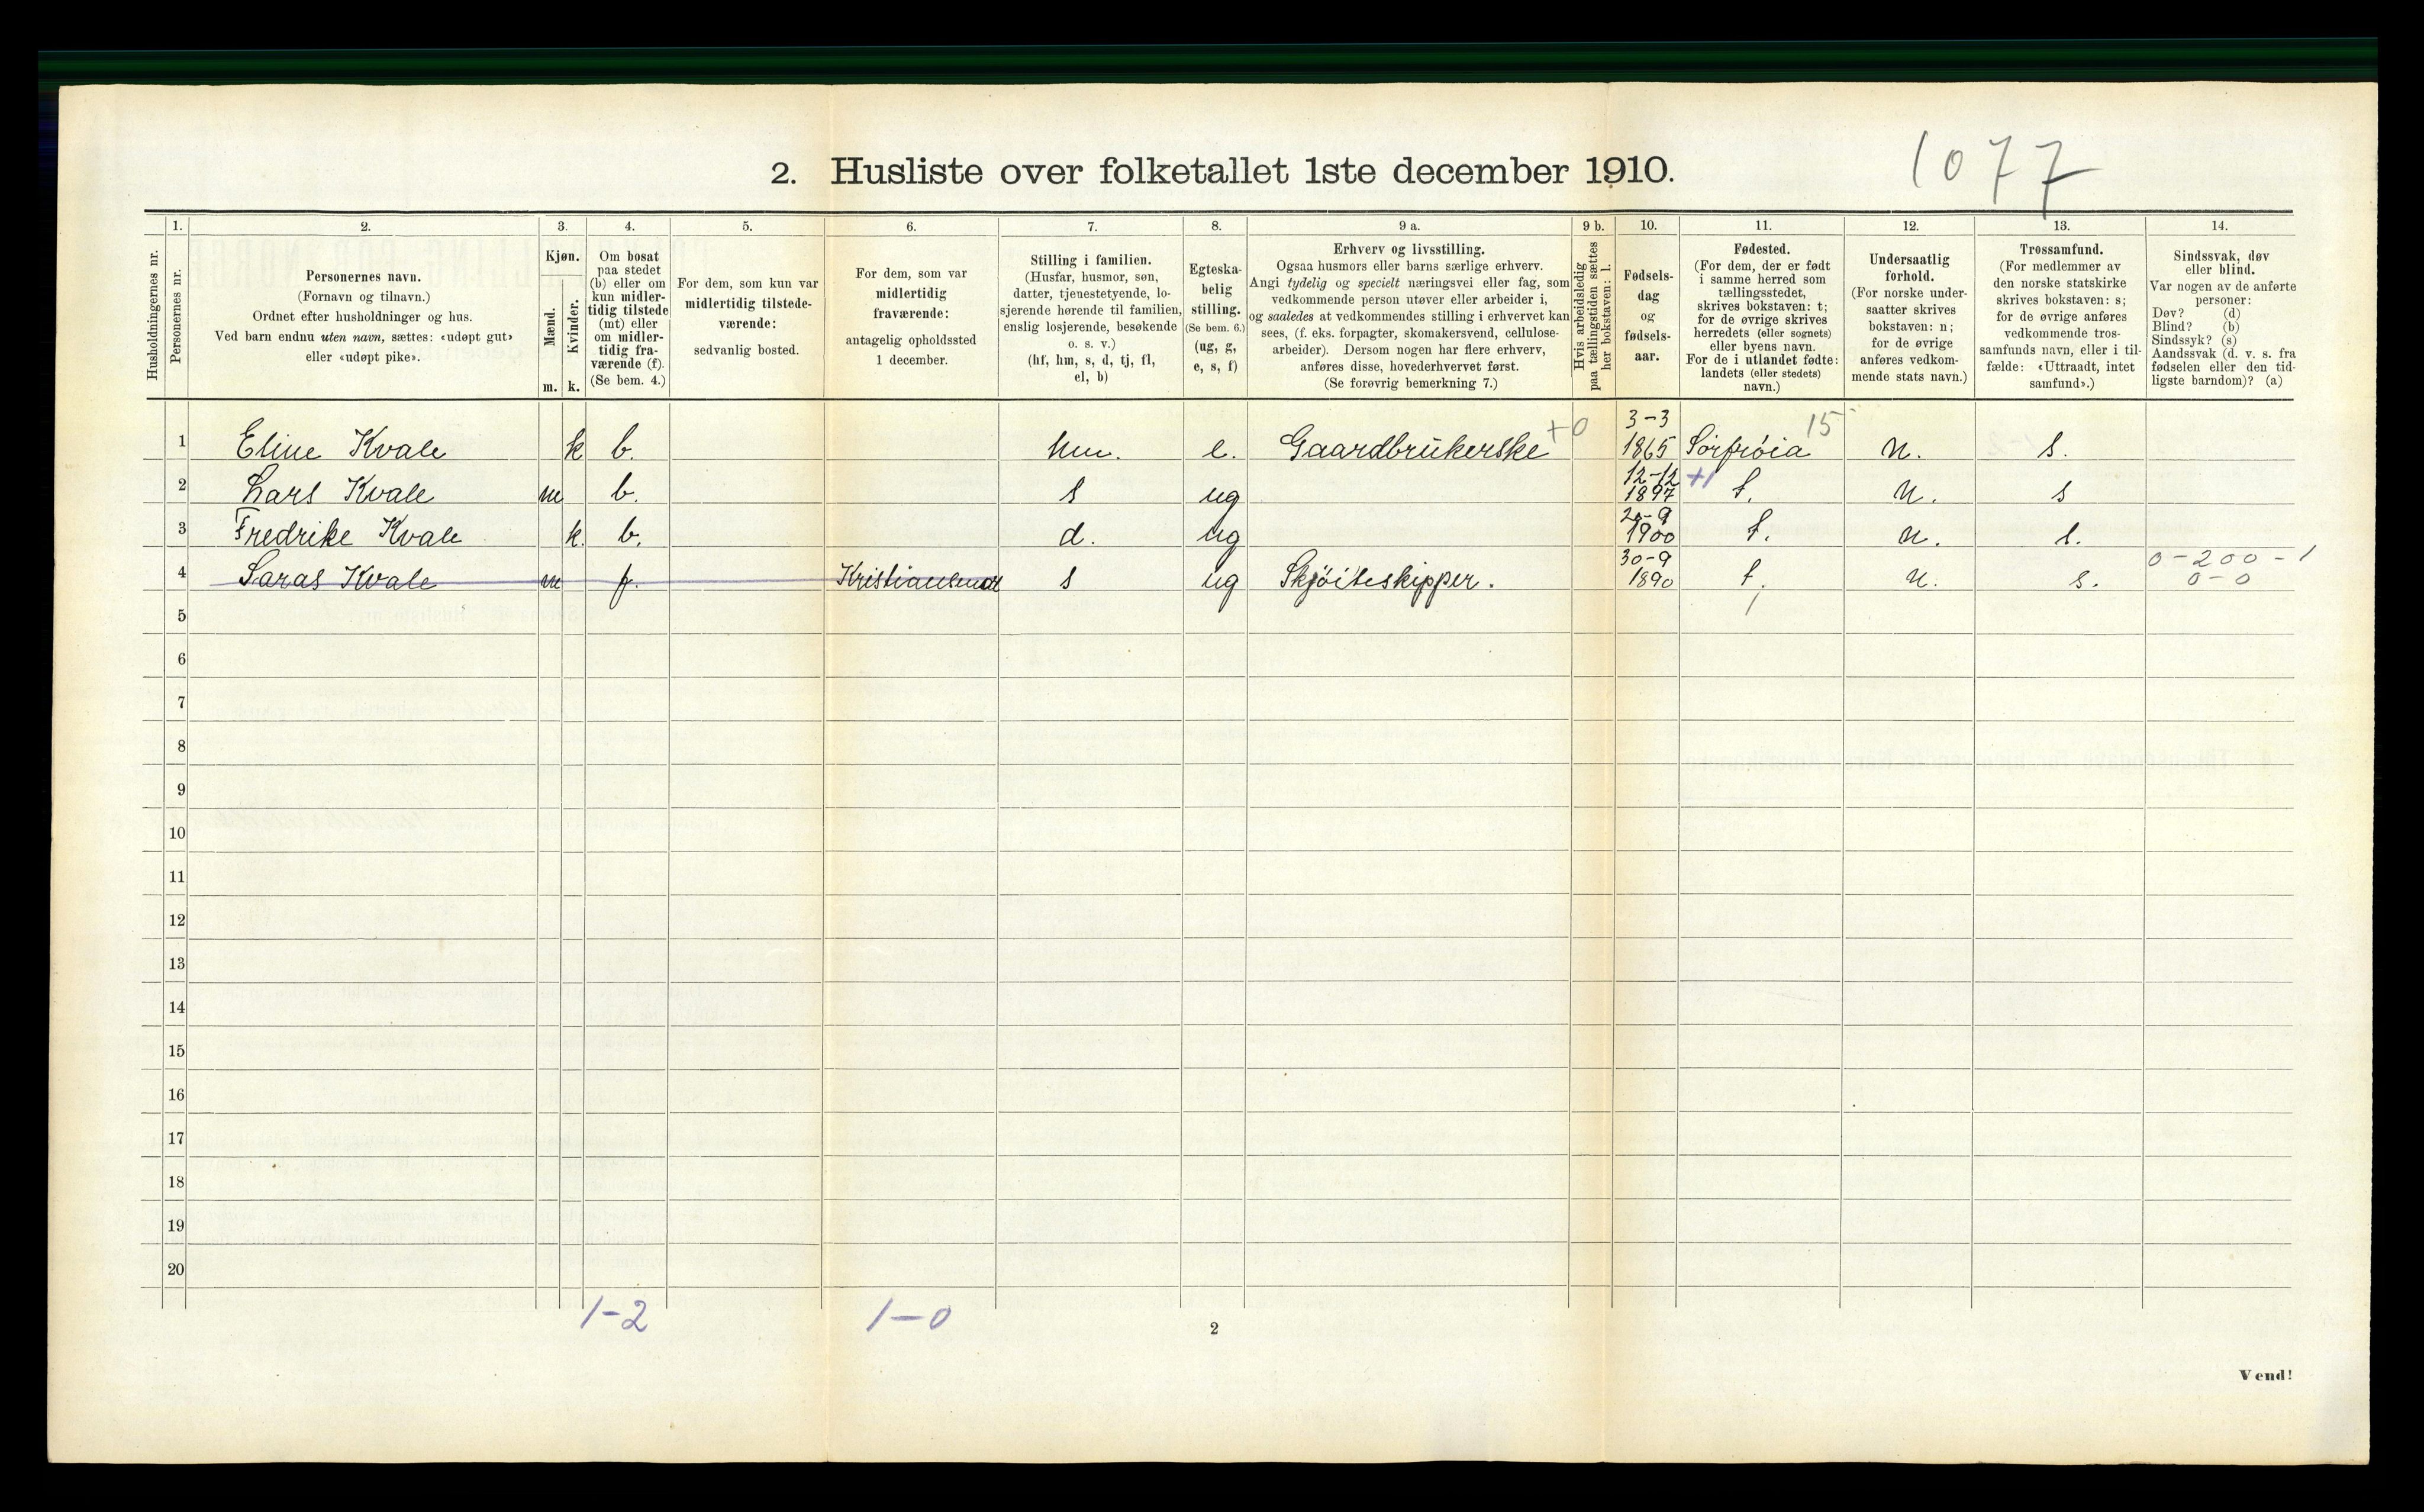 1077
2. Husliste over folketallet 1ste december 1910.
Husholdningernes nr.
1.
Personernes nr.
2.
Personernes navn.
(Fornavn og tilnavn.)
Ordnet efter husholdninger og hus.
Ved barn endnu uten navn, sættes: «udøpt gut»
eller «udøpt pike».
3.
Kjøn.
Mænd.
m.
Kvinder.
k.
4.
Om bosat
paa stedet
(b) eller om
kun midler-
tidig tilstede
(mt) eller
om midler-
tidig fra-
værende (f).
(Se bem. 4.)
5.
For dem, som kun var
midlertidig tilstede-
værende:
sedvanlig bosted.
6.
For dem, som var
midlertidig
fraværende:
antagelig opholdssted
1 december.
7.
Stilling i familien.
(Husfar, husmor, søn,
datter, tjenestetyende, lo-
sjerende hørende til familien,
enslig losjerende, besøkende
o. s. v.)
(hf, hm, s, d, tj, fl,
el, b)
8.
Egteska-
belig
stilling.
(Se bem. 6.)
(ug, g,
e, s, f)
9 a.
Erhverv og livsstilling.
Ogsaa husmors eller barns særlige erhverv.
Angi tydelig og specielt næringsvei eller fag, som
vedkommende person utøver eller arbeider i,
og saaledes at vedkommendes stilling i erhvervet kan
sees, (f. eks. forpagter, skomakersvend, cellulose-
arbeider). Dersom nogen har flere erhverv,
anføres disse, hovederhvervet først.
(Se forøvrig bemerkning 7.)
9 b.
Hvis arbeidsledig
paa tællingstiden sættes
her bokstaven: l.
10.
Fødsels-
dag
og
fødsels-
aar.
11.
Fødested.
(For dem, der er født
i samme herred som
tællingsstedet,
skrives bokstaven: t;
for de øvrige skrives
herredets (eller sognets)
eller byens navn.
For de i utlandet fødte:
landets (eller stedets)
navn.)
12.
Undersaatlig
forhold.
(For norske under-
saatter skrives
bokstaven: n;
for de øvrige
anføres vedkom-
mende stats navn.)
13.
Trossamfund.
(For medlemmer av
den norske statskirke
skrives bokstaven: s;
for de øvrige anføres
vedkommende tros-
samfunds navn, eller i til-
fælde: «Uttraadt, intet
samfund».)
14.
Sindssvak, døv
eller blind.
Var nogen av de anførte
personer:
Døv? (d)
Blind? (b)
Sindssyk? (s)
Aandssvak (d. v. s. fra
fødselen eller den tid-
ligste barndom)? (a)
1 Eline Kvale k b. hm. e. Gaardbrukerske +0 3-3 1865 Sørfrøia 15 n. s.
2 Lars Kvale m b. s ug 12-12 1897 +1 t. n. s
3 Fredrike Kvale k. b. d. ug 1900 t. n. s.
4 Kvale m f. s ug Skjøiteskipper. 30-9 1890 t. n. s. 0-200-1 0-0
5
6
7
8
9
10
11
12
13
14
15
16
17
18
19
20
1-2 1-0
2
Vend!